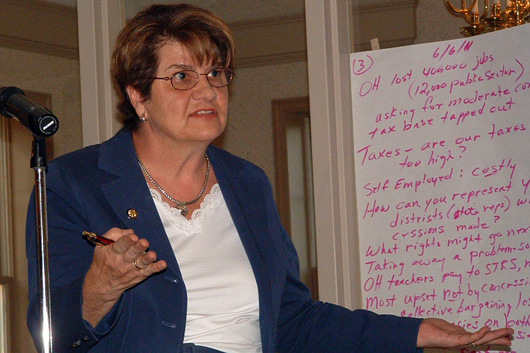 6/6/11
(3)
OH lost 400000 jobs
(12,000 public sector)
asking for moderate con
Tax base tapped out
Taxes – are our taxes
too high?
Self Employed: costly
How can you represent y
districts (state reps) w
made?
What rights might go next
Taking away a problem-so
OH teachers pay to STRS, n
Most upset not by concessi
collective bargaining lo
on both